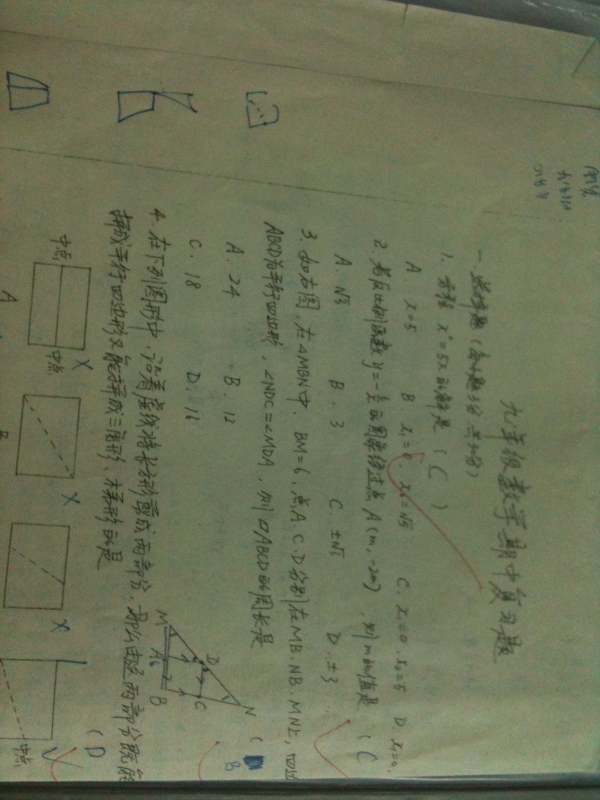 九年级数学期中复习题
一、选择题（每小题3分 共30分）
1. 方程 x²=5x 的解是 （C）
A x=5 B. x₁=0. x₂=√5 C. x₁=0. x₂=5 D. x₁=0.
2. 若反比例函数 y=-的图象经过点 A(m, -2m) . 则m的值是 （C
A. √3 B. 3 C. ±√3 D. ±3
3. 如右图, 在△MBN中. BM=6, 点A.C.D分别在MB.NB.MN上, 四边
ABCD为平行四边形, ∠NDC=∠MDA, 则▱ABCD的周长是 （ B
A. 24 B. 12
C. 18 D. 16
M A B D C N
4. 在下列图形中, 沿着虚线将长方形剪成两部分, 那么由这两部分既能
拼成平行四边形又能拼成三角形、梯形的是 （D
中点 中点 X X X 中点
A B